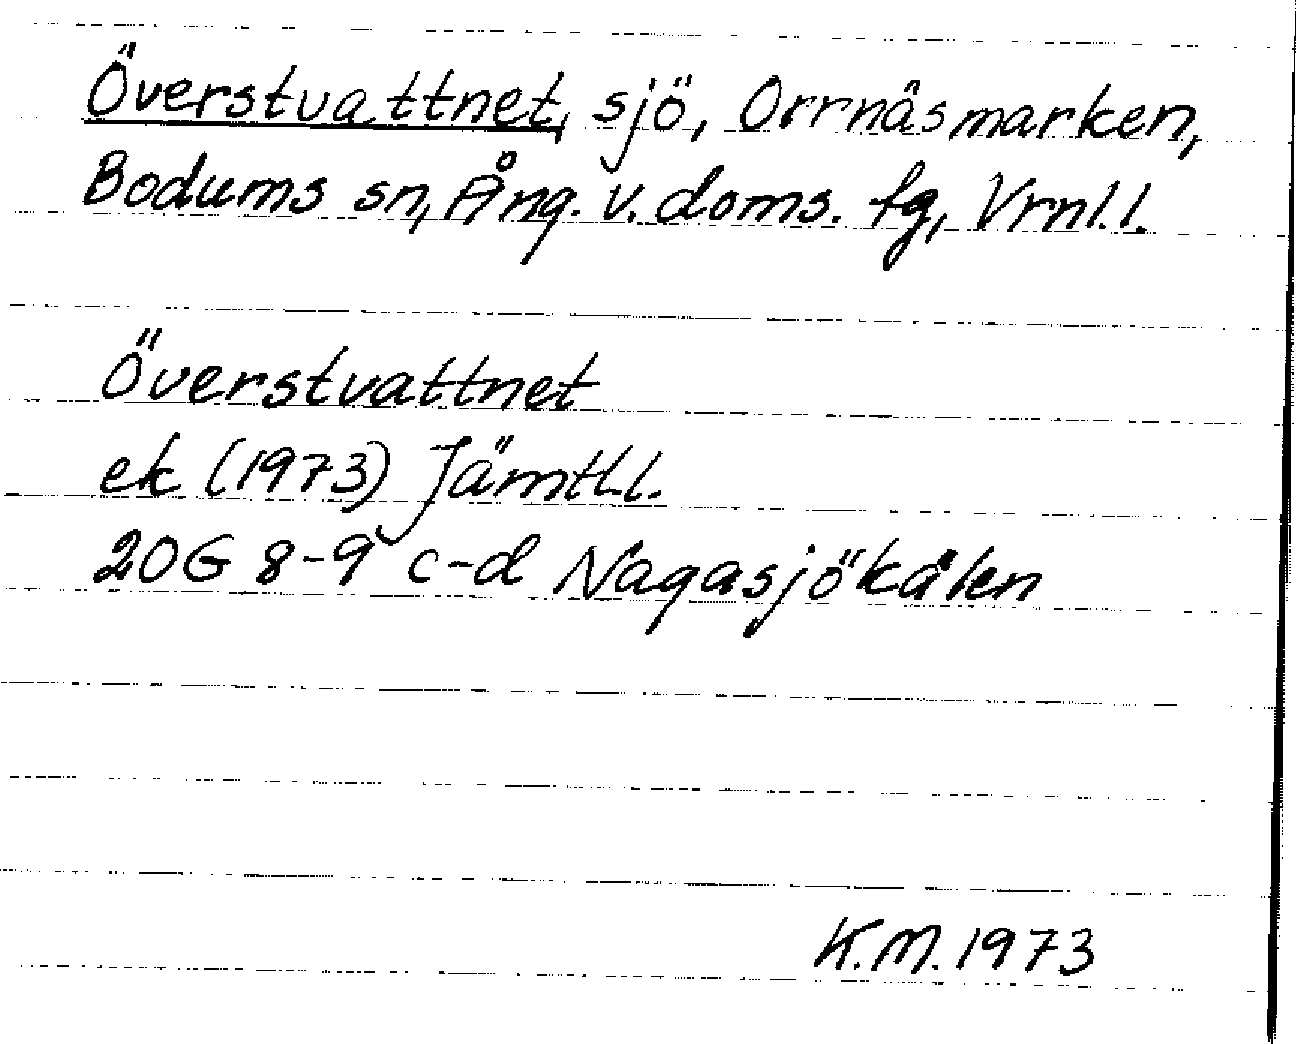 Överstvattnet, sjö, Orrnäsmarken,
Bodums sn, Ång. v. doms. tg, Vrnl. l.
Överstvattnet
ek (1973) Jämtl. l.
20G 8-9 c-d Nagasjökälen
K.M. 1973